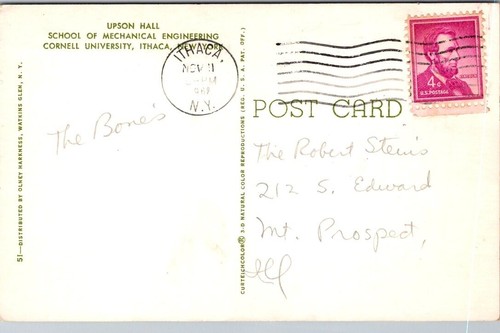 UPSON HALL
SCHOOL OF MECHANICAL ENGINEERING
CORNELL UNIVERSITY, ITHACA, NEW YORK
ITHACA,
NOV 11
N.Y.
4¢
U.S. POSTAGE
POST CARD
The Bone's
The Robert Steins
212 S. Edward
Mt. Prospect,
Ill
51—DISTRIBUTED BY OLNEY HARKNESS, WATKINS GLEN, N. Y.
CURTEICHCOLOR® 3-D NATURAL COLOR REPRODUCTIONS (REG. U. S. A. PAT. OFF.)